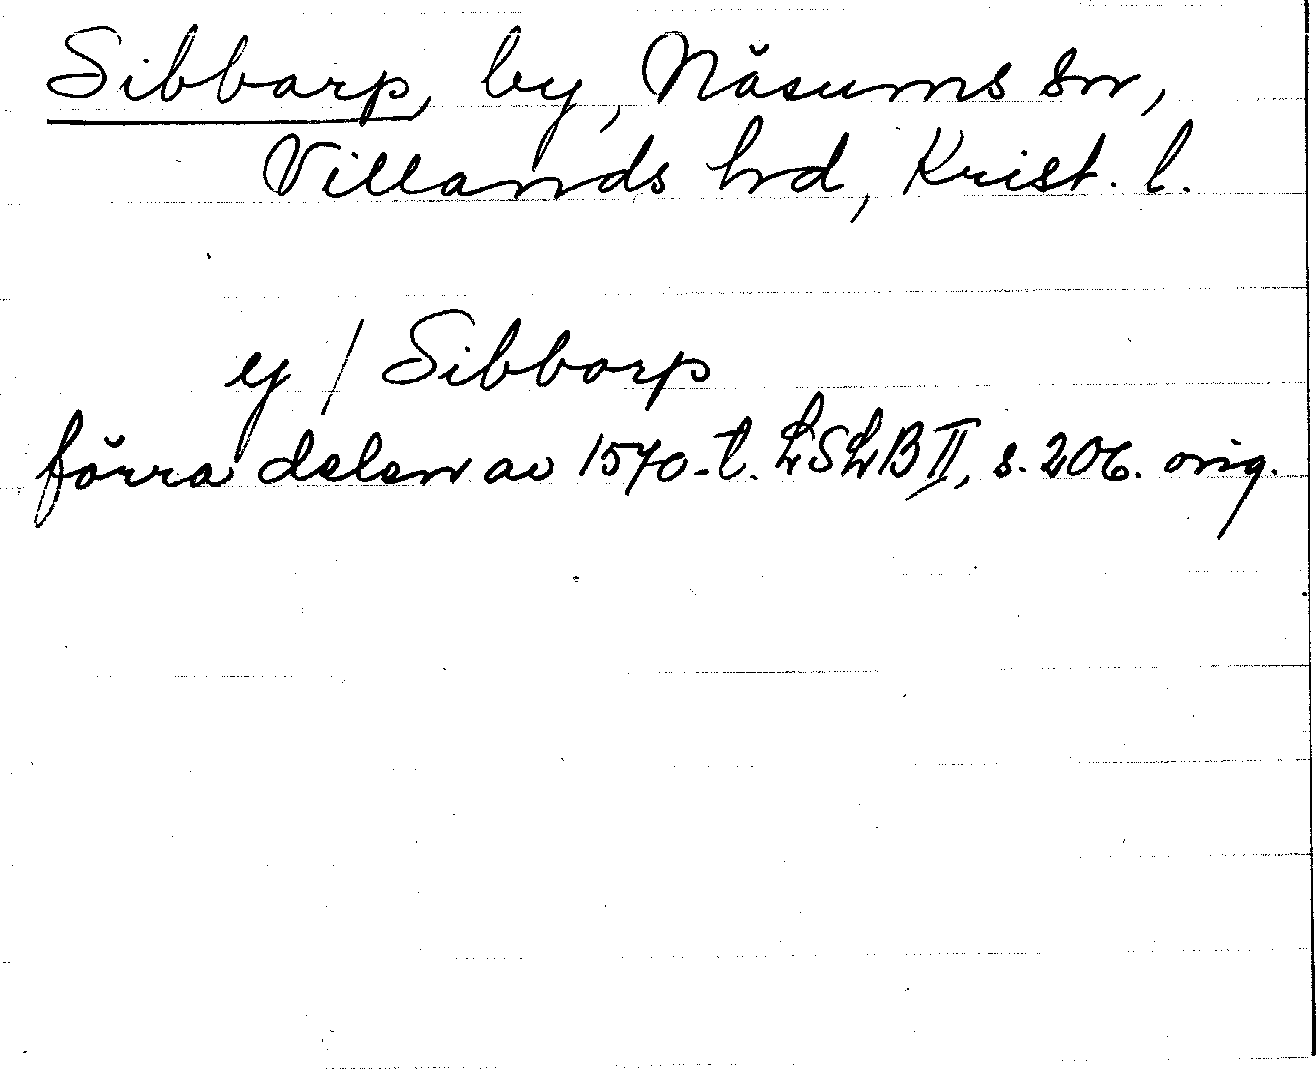 Sibbarp, by, Näsums sn,
Villands hd, Krist. l.
ij / Sibborp
förra delen av 1570-t. LSLB II, s. 206. orig.